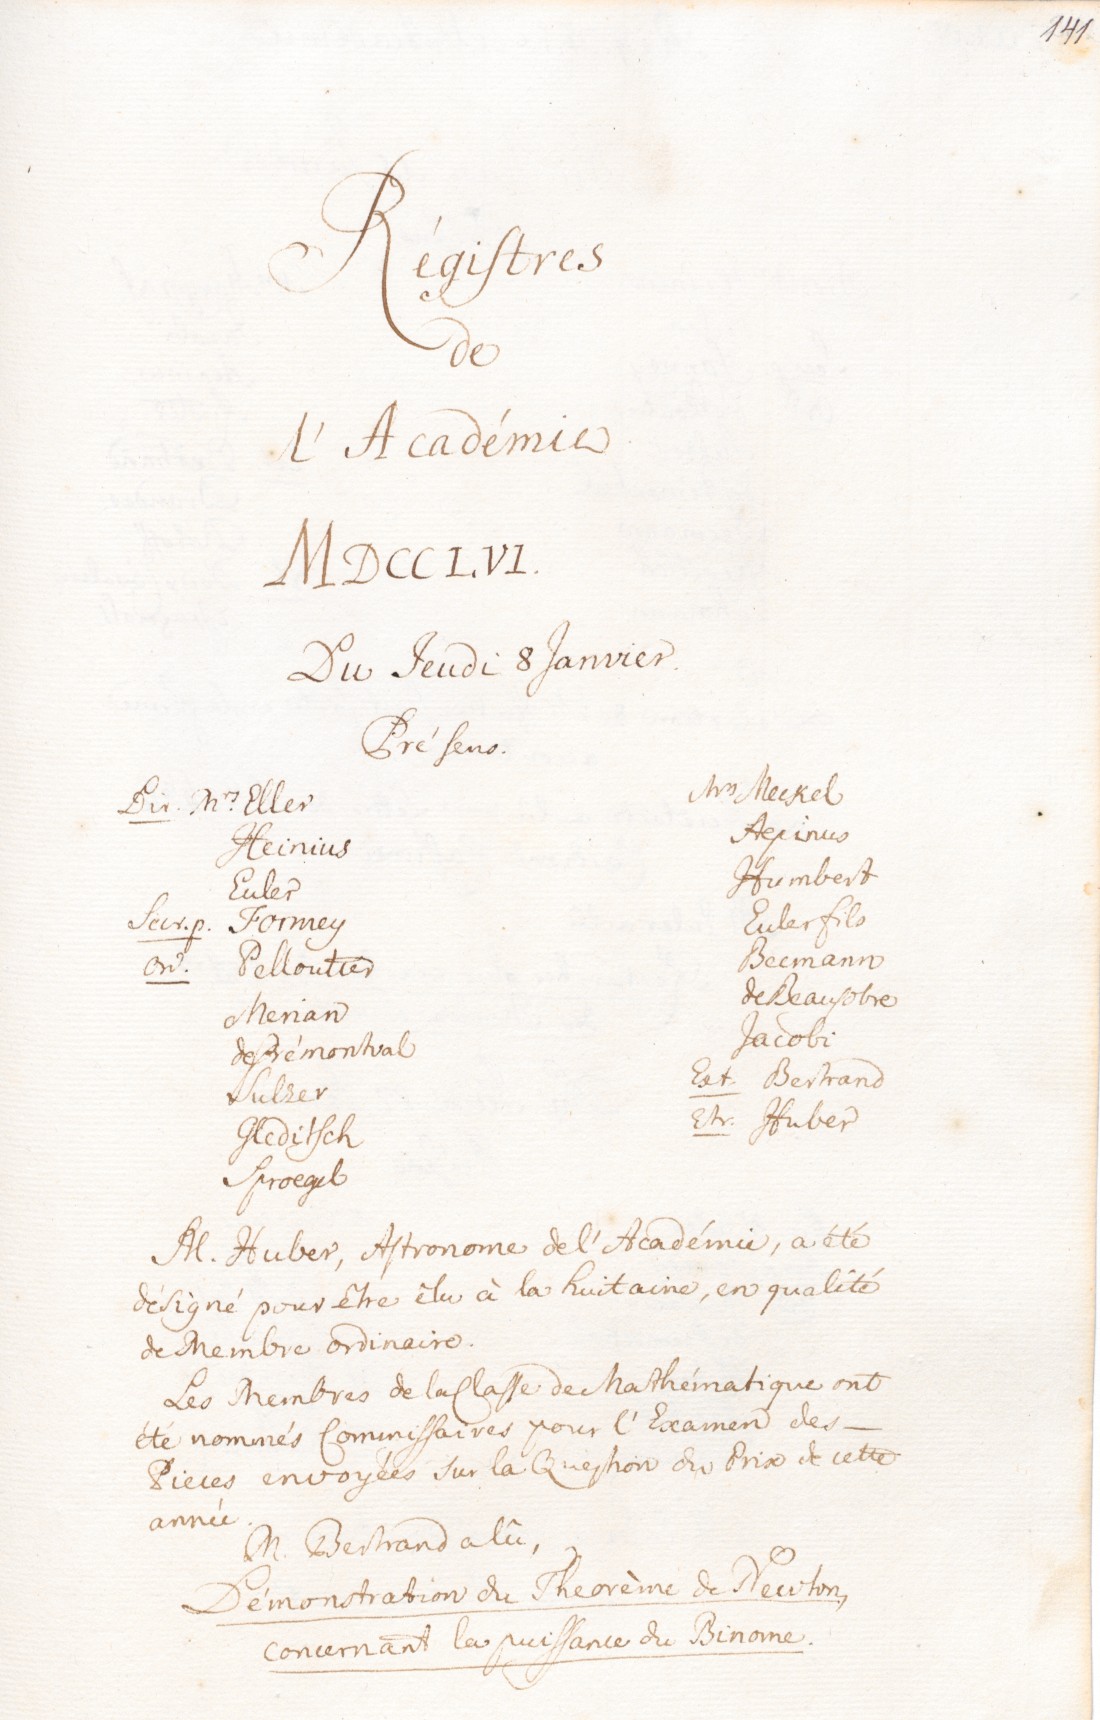 141
Régistres
de
l'Académie
MDCCLVI.
Du Jeudi 8 Janvier.
Présens.
Dir. Mrs Eller
Heinius
Euler
Secr. p. Formey
Or. Pelloutier
Merian
de Prémontval
Sulzer
Gleditsch
Sproegel
Mrs Meckel
Aepinus
Humbert
Euler fils
Becmann
de Beausobre
Jacobi
Ext. Bertrand
Etr. Huber
M. Huber, Astronome de l'Académie, a été
désigné pour être êlu à la huitaine, en qualité
de Membre ordinaire.
Les Membres de la Classe de Mathématique ont
été nommés Commissaires pour l'Examen des
Pieces envoyées sur la Question du Prix de cette
année.
M. Bertrand a lû,
Démonstration du Theorème de Newton,
concernant la puissance du Binome.